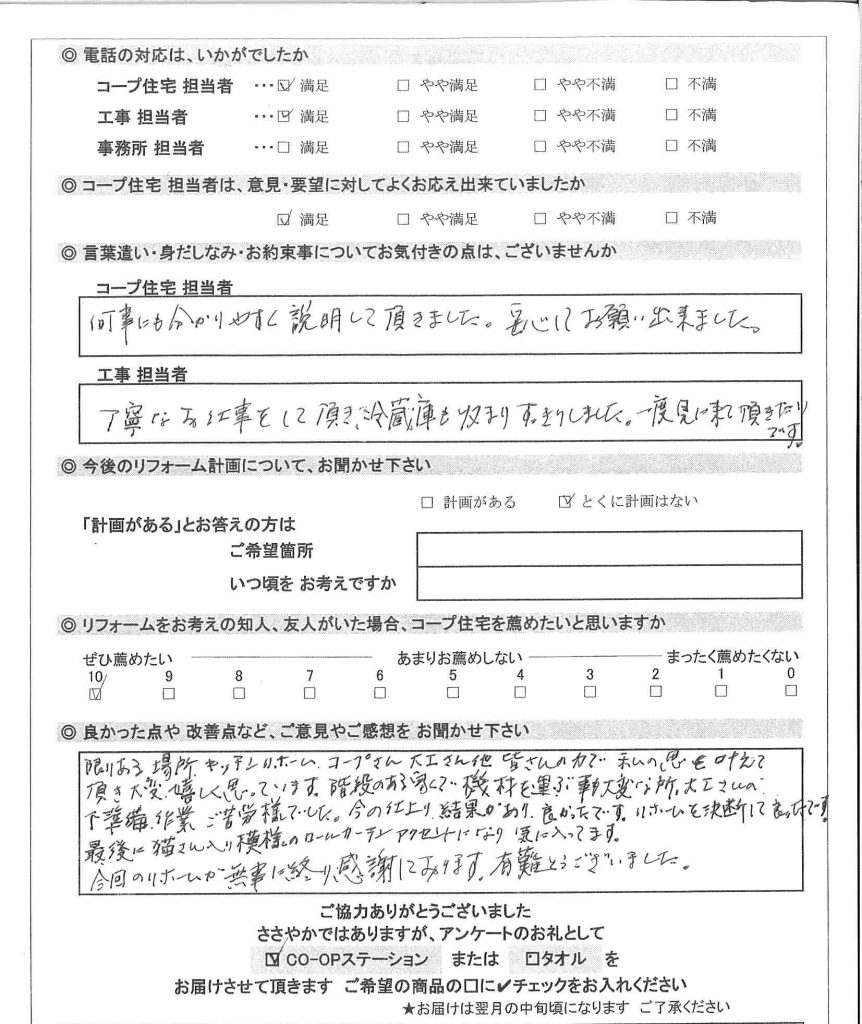 ◎ 電話の対応は、いかがでしたか
コープ住宅 担当者 …☑ 満足 □ やや満足 □ やや不満 □ 不満
工事 担当者 …☑ 満足 □ やや満足 □ やや不満 □ 不満
事務所 担当者 …□ 満足 □ やや満足 □ やや不満 □ 不満
◎ コープ住宅 担当者は、意見・要望に対してよくお応え出来ていましたか
☑ 満足 □ やや満足 □ やや不満 □ 不満
◎ 言葉遣い・身だしなみ・お約束事についてお気付きの点は、ございませんか
コープ住宅 担当者
何事にも分かりやすく説明して頂きました。安心してお願い出来ました。
工事 担当者
丁寧なお仕事をして頂き、冷蔵庫も収まりすっきりしました。一度見に来て頂きたい
です。
◎ 今後のリフォーム計画について、お聞かせ下さい
□ 計画がある ☑ とくに計画はない
「計画がある」とお答えの方は
ご希望箇所
いつ頃を お考えですか
◎ リフォームをお考えの知人、友人がいた場合、コープ住宅を薦めたいと思いますか
ぜひ薦めたい あまりお薦めしない まったく薦めたくない
10 9 8 7 6 5 4 3 2 1 0
☑ □ □ □ □ □ □ □ □ □ □
◎ 良かった点や 改善点など、ご意見やご感想を お聞かせ下さい
限りある場所、キッチンリホーム、コープさん大工さん他皆さんの力で私の思を叶えて
頂き大変嬉しく思っています。階段のある家で機材を運ぶ事大変な所、大工さんの
下準備、作業ご苦労様でした。今の仕上り、結果があり、良かったです。リホームを決断して良かったです
最後に猫さん入り模様のロールカーテンアクセントになり気に入ってます。
今回のリホームが無事に終り、感謝しております。有難とうございました。
ご協力ありがとうございました
ささやかではありますが、アンケートのお礼として
☑ CO-OPステーション または □タオル を
お届けさせて頂きます ご希望の商品の□に✔チェックをお入れください
★お届けは翌月の中旬頃になります ご了承ください